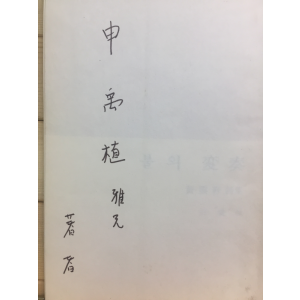 申禹植雅兄
著者